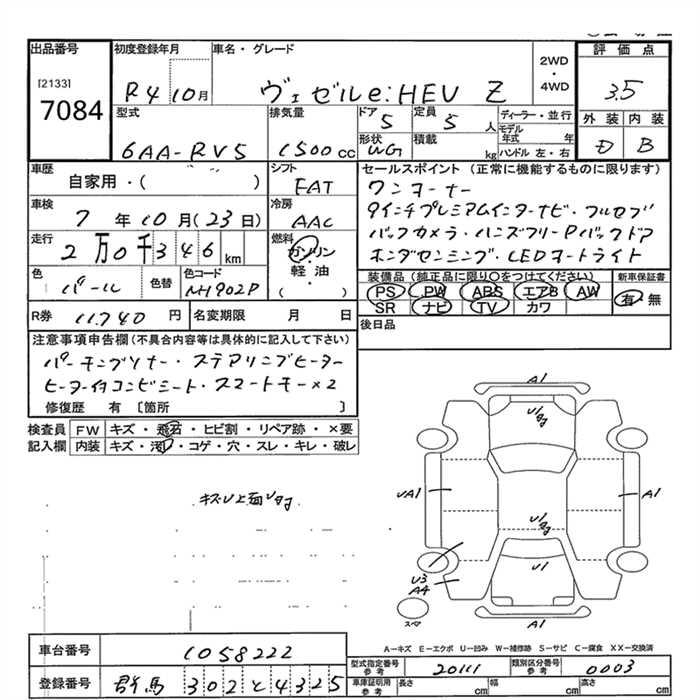 出品番号 初度登録年月 車名・グレード 2WD・4WD 評価点
[2133] 7084 R4 10月 ヴェゼル e:HEV Z 3.5
型式 排気量 ドア 定員 ディーラー・並行 外装 内装
6AA-RV5 1500cc 5 5人 モデル年式 年 D B
形状 積載 kg ハンドル 左・右
WG
車歴 シフト セールスポイント(正常に機能するものに限ります)
自家用・( ) FAT ワンオーナー
車検 冷房 9インチプレミアムインターナビ・フルセグ
7年10月(23日) AAC バックカメラ・ハンズフリーPバックドア
走行 燃料 ホンダセンシング・LEDオートライト
2万0千346km ガソリン 軽油 ( )
色 色替 色コード 装備品(純正品に限り○をつけてください) 新車保証書
パール NH902P PS PW ABS エアB AW 有・無
SR ナビ TV カワ
R券 11,740円 名変期限 月 日 後日品
注意事項申告欄(不具合内容等は具体的に記入して下さい)
パーキングソナー・ステアリングヒーター
ヒーター付コンビシート・スマートキー×2
修復歴 有 [箇所 ]
検査員 FW キズ・飛石・ヒビ割・リペア跡・×要
記入欄 内装 キズ・汚・コゲ・穴・スレ・キレ・破レ
A1
キズU上面
U1
UA1
A1
U1
U1
U3
A4
スペア
A1
A-キズ E-エクボ U-凹み W-補修跡 S-サビ C-腐食 XX-交換済
車台番号 1058222
型式指定番号 参考 20111 類別区分番号 参考 0003
登録番号 群馬 302 と 4325
車庫証明用 参考 長さ cm 幅 cm 高さ cm